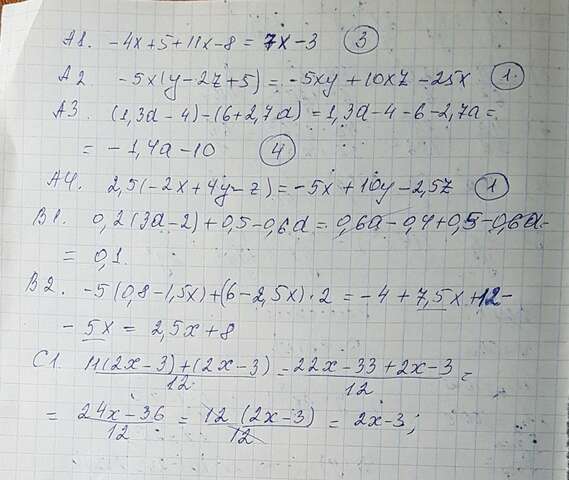 A1. -4x+5+11x-8 = 7x-3 (3)
A2 -5x(y-2z+5) = -5xy+10xz-25x (1.)
A3 (1,3a-4)-(6+2,7a) = 1,3a-4-6-2,7a =
= -1,4a-10 (4)
A4. 2,5(-2x+4y-z) = -5x+10y-2,5z (1)
B1. 0,2(3a-2)+0,5-0,6a = 0,6a-0,4+0,5-0,6a=
= 0,1.
B2. -5(0,8-1,5x)+(6-2,5x)·2 = -4+7,5x+12-
- 5x = 2,5x+8
C1. 11(2x-3)+(2x-3)/12 = 22x-33+2x-3/12 =
= 24x-36/12 = 12(2x-3)/12 = 2x-3;